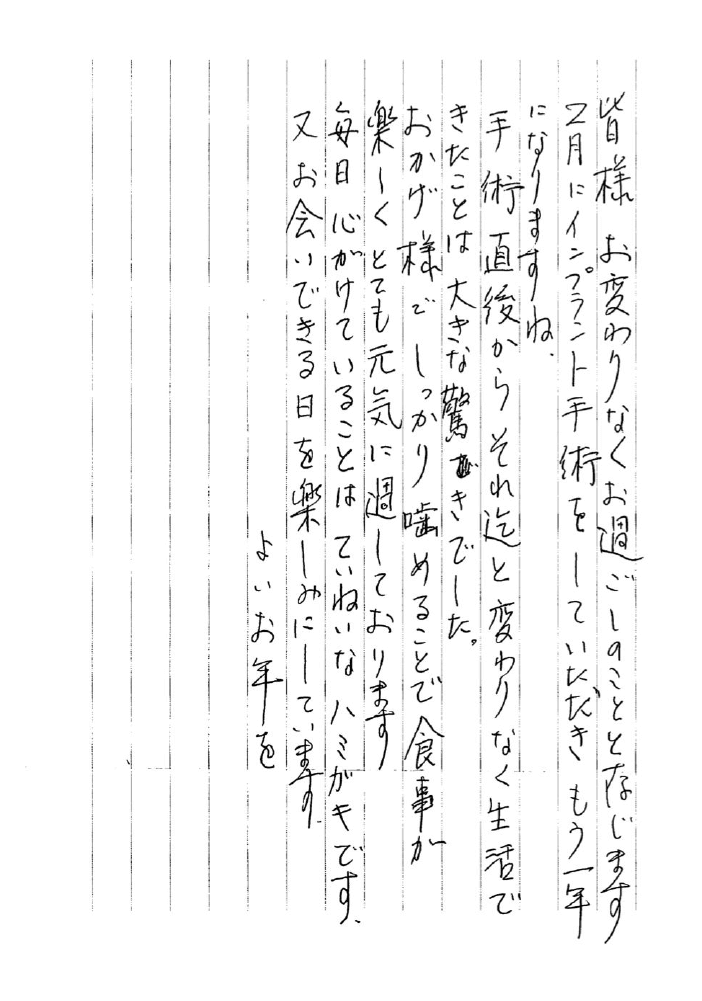 皆様 お変わりなくお過ごしのことと存じます
2月にインプラント手術をしていただき もう一年
になりますね、
手術直後から それ迄と変わりなく生活で
きたことは 大きな驚きでした。
おかげ様で しっかり噛めることで食事が
楽しく とても元気に過しております
毎日 心がけていることは ていねいな ハミがキです、
又 お会いできる日を楽しみにしています、
よいお年を